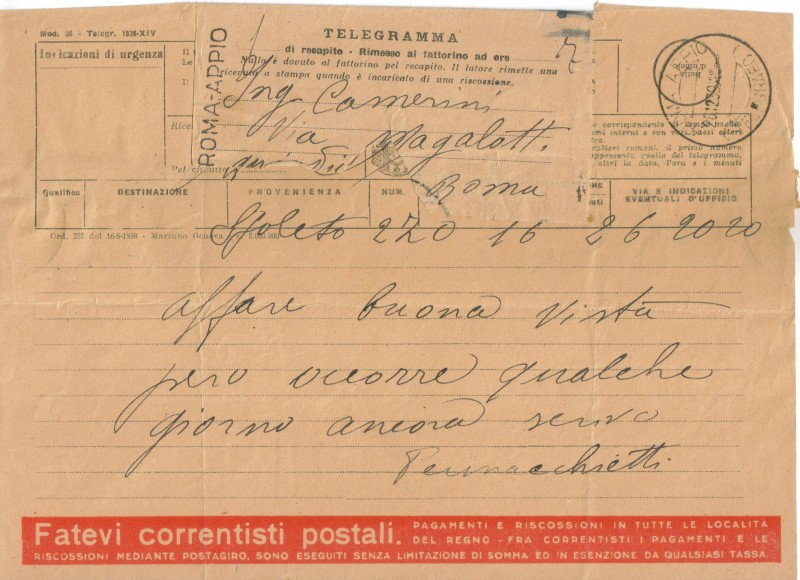 Mod. 30 - Telegr. 1936-XIV
Indicazioni di urgenza
ROMA-APPIO
TELEGRAMMA
di recapito - Rimesso al fattorino ad ore
Nulla è dovuto al fattorino pel recapito. Il latore rimette una
ricevuta a stampa quando è incaricato di una riscossione.
Bollo
d'ufficio
Ing Camerini
Via Magalotti
Roma
Qualifica
DESTINAZIONE
PROVENIENZA
NUM.
VIA E INDICAZIONI
EVENTUALI D'UFFICIO
Ord. 252 dal 16-6-1939 - Marsano Genova
Spoleto 270 16 26 20 20
affare buona vista
pero occorre qualche
giorno ancora scrivo
Pennacchietti
Fatevi correntisti postali. PAGAMENTI E RISCOSSIONI IN TUTTE LE LOCALITÀ
DEL REGNO - FRA CORRENTISTI I PAGAMENTI E LE
RISCOSSIONI MEDIANTE POSTAGIRO, SONO ESEGUITI SENZA LIMITAZIONE DI SOMMA ED IN ESENZIONE DA QUALSIASI TASSA.